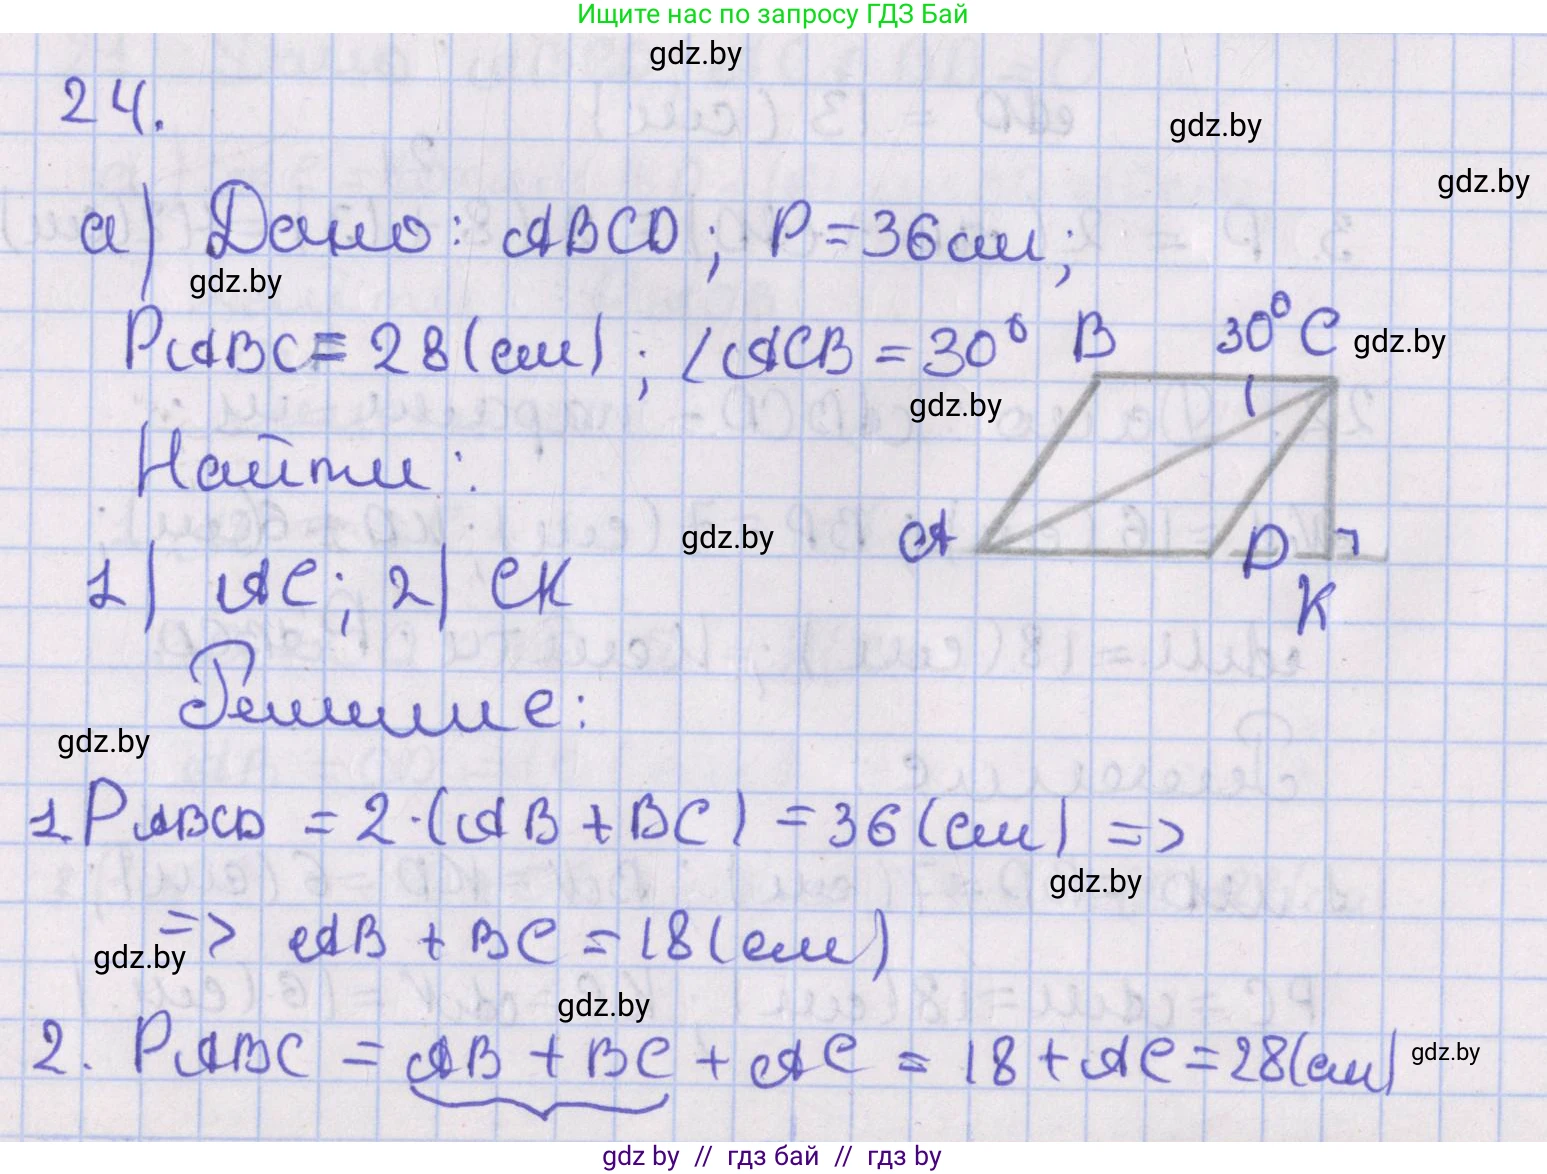 Ищите нас по запросу ГДЗ Бай
gdz.by
24.
gdz.by
gdz.by
а) Дано: ABCD; P = 36 см;
gdz.by
PABC = 28 (см); ∠ACB = 30°
B 30° C
gdz.by
gdz.by
Найти:
gdz.by
A D K
1) AC; 2) CK
Решение:
gdz.by
1. PABCD = 2·(AB + BC) = 36 (см) =>
gdz.by
=> AB + BC = 18 (см)
gdz.by
gdz.by
2. PABC = AB + BC + AC = 18 + AC = 28 (см)
gdz.by
gdz by // гдз бай // гдз by